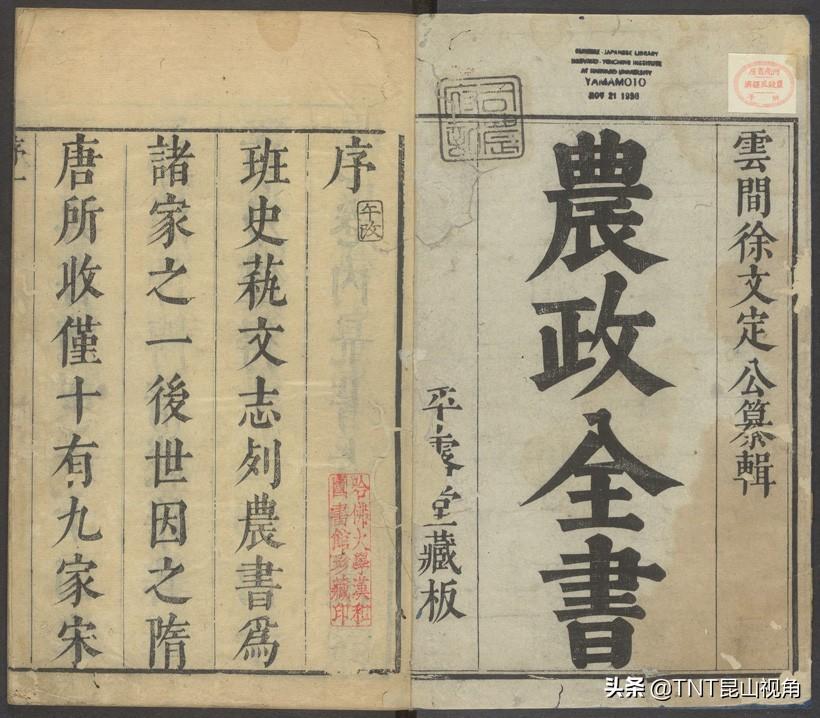 雲間徐文定公纂輯
農政全書
平露堂藏板
CHINESE-JAPANESE LIBRARY
HARVARD-YENCHING INSTITUTE
AT HARVARD UNIVERSITY
YAMAMOTO
NOV 21 1936
序
班史藝文志列農書爲
諸家之一後世因之隋
唐所收僅十有九家宋
哈佛大學漢和
圖書館珍藏印
序一
头条 @TNT昆山视角